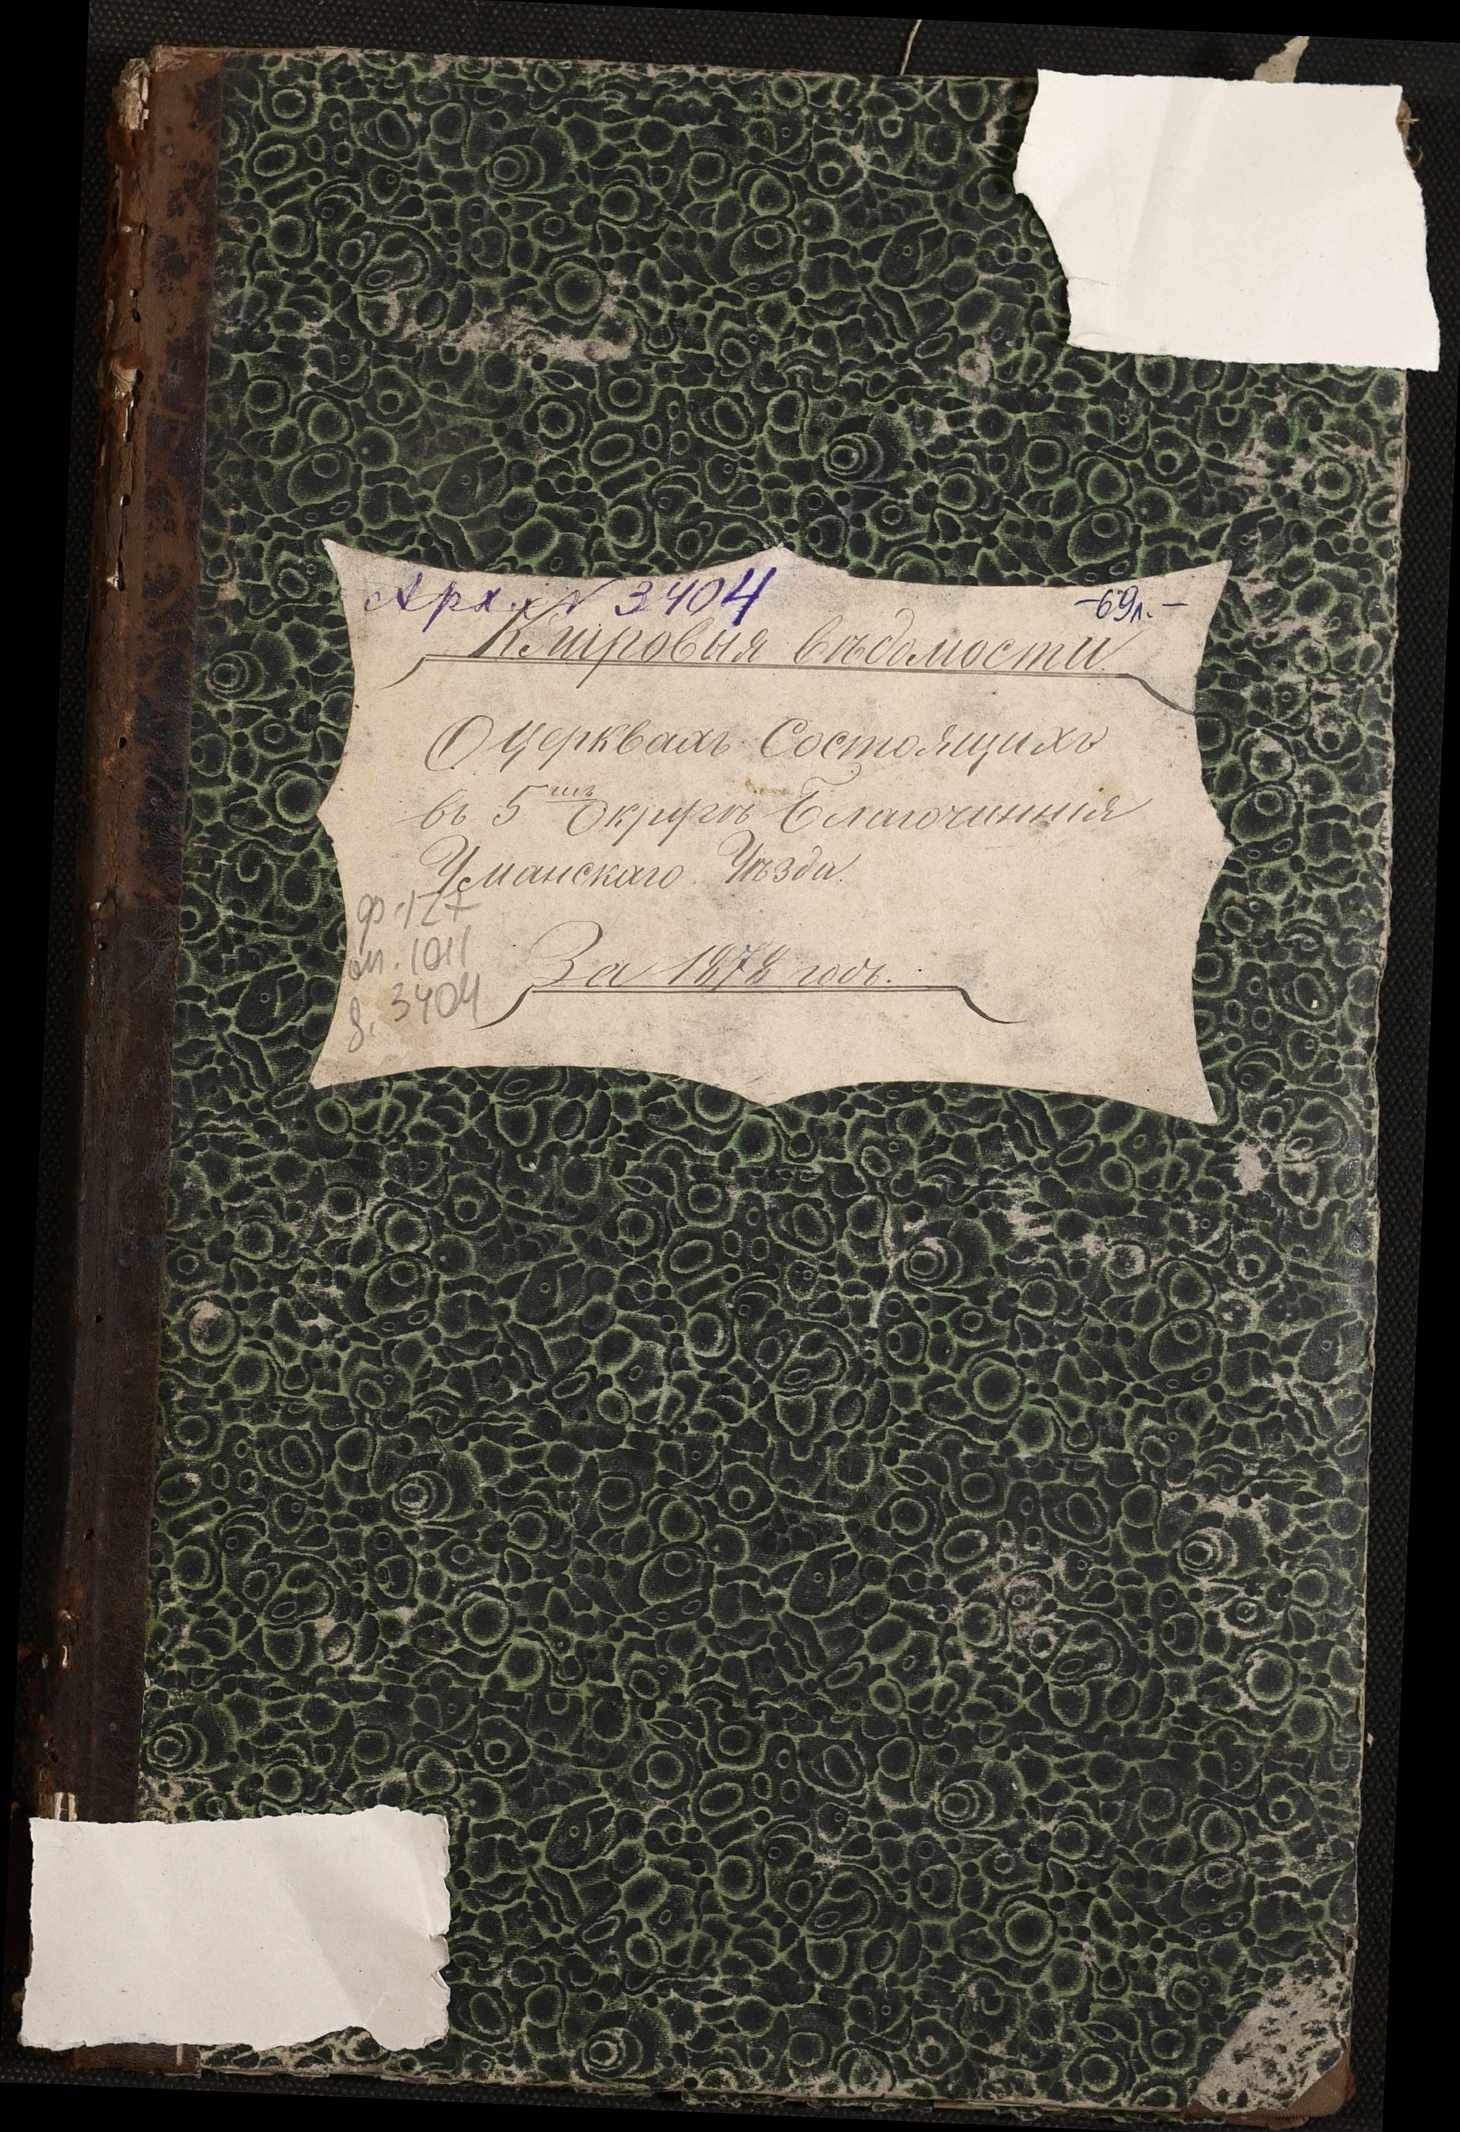 Арх. № 3404 -69л.-
Клировыя вѣдомости.
О Церквахъ Состоящихъ
въ 5мъ Округѣ Благочинія
Уманскаго Уѣзда.
За 1878 годъ.
ф. 127
оп. 1011
д. 3404